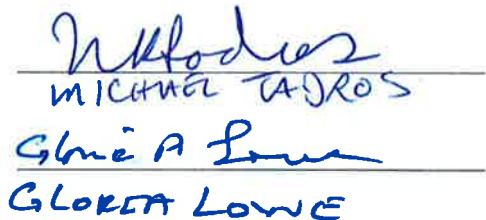 MICHAEL TADROS
Gloria A Lowe
GLORIA LOWE